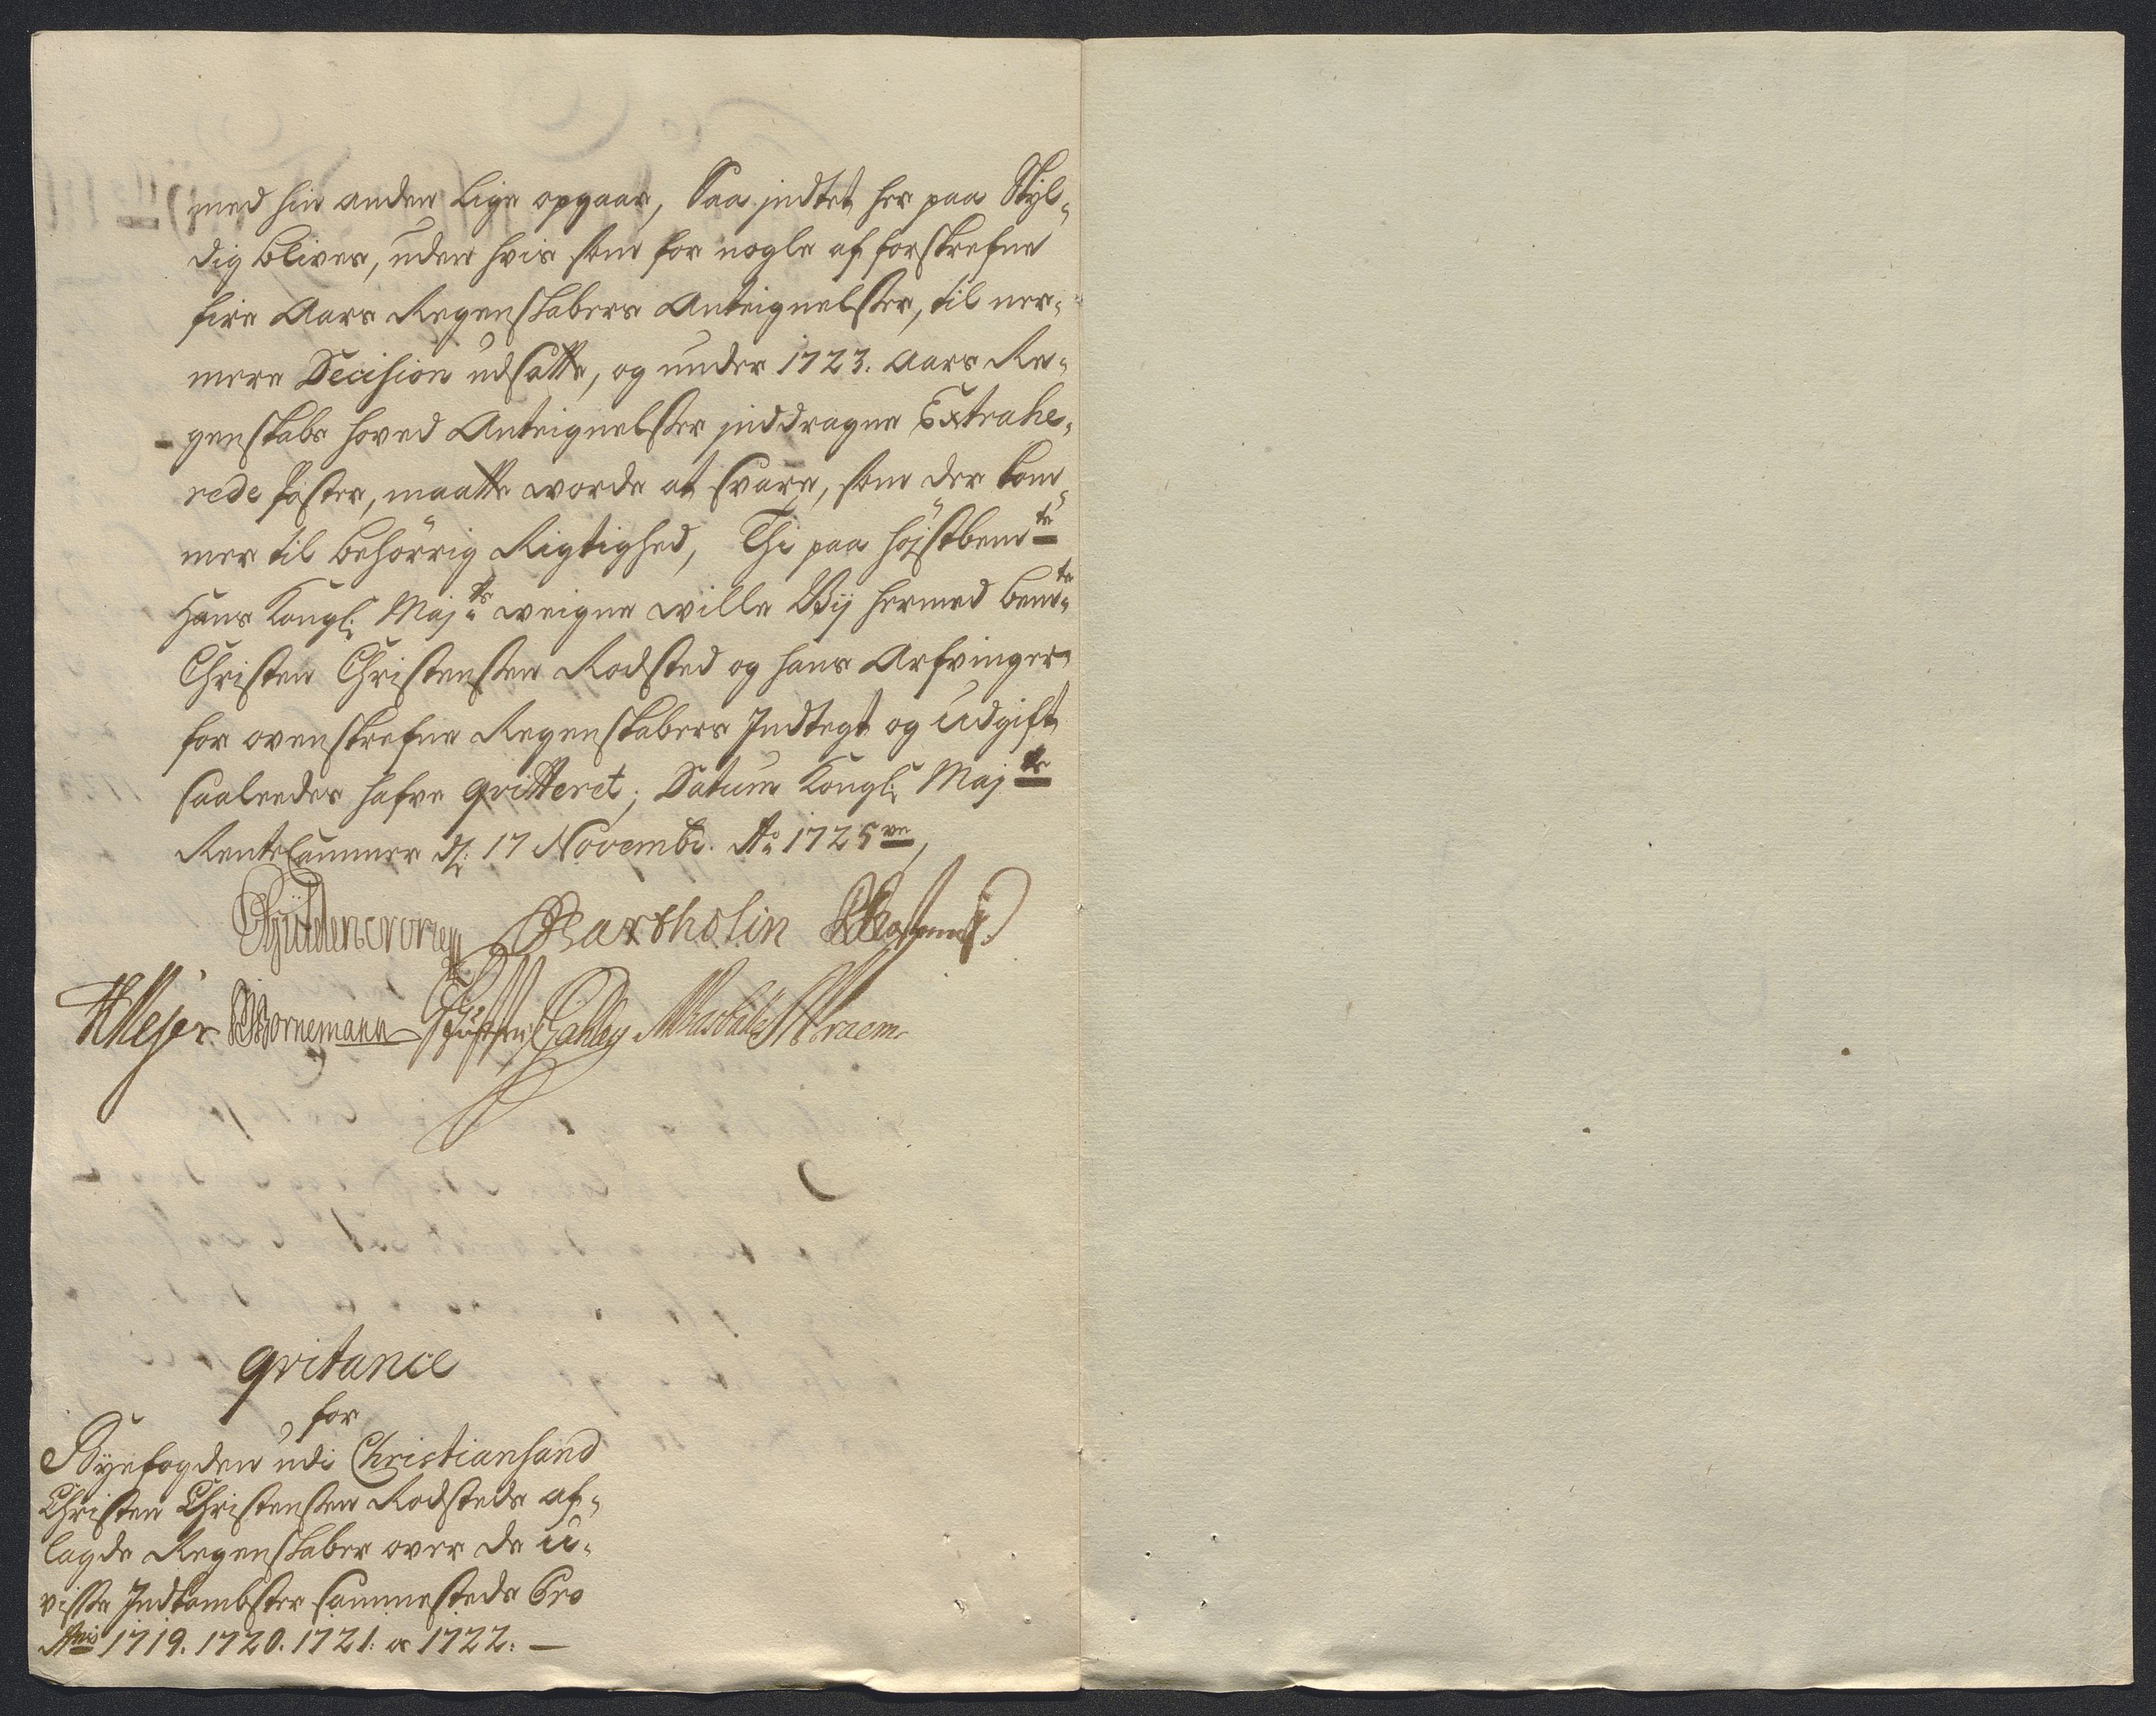 med hin anden lige opgaar, Saa jndtet her paa Skyl-
dig bliver, uden hvis som for nogle af forskrefne
fire Aars Regenskabers Anteignelser, til ner-
mere Decision udsatte, og under 1723. Aars Re-
genskabs hoved Anteignelser jnddragne Extrahe-
rede Poster, maatte worde at svare, som der kom-
mer til behörrig Rigtighed, Thi paa höjstbemte
Hans Kongl: Majts weigne wille Wij hermed bemte
Christen Christensen Rodsted og hans Arfvinger
for ovenskrefne Regenskabers Indtegt og Udgift
saaleedes hafve qvitteret; Datum Kongl: Majts
RenteCammer d: 17 Novembr. Ao 1725ve,
Gyldencrone Bartholin
HMejer Bornemann
qvitance
for
Byefogden udi Christiansand
Christen Christensen Rodsteds af-
lagde Regenskaber over de u-
visse Indkombster sammesteds Pro
Anis 1719. 1720. 1721. og 1722.